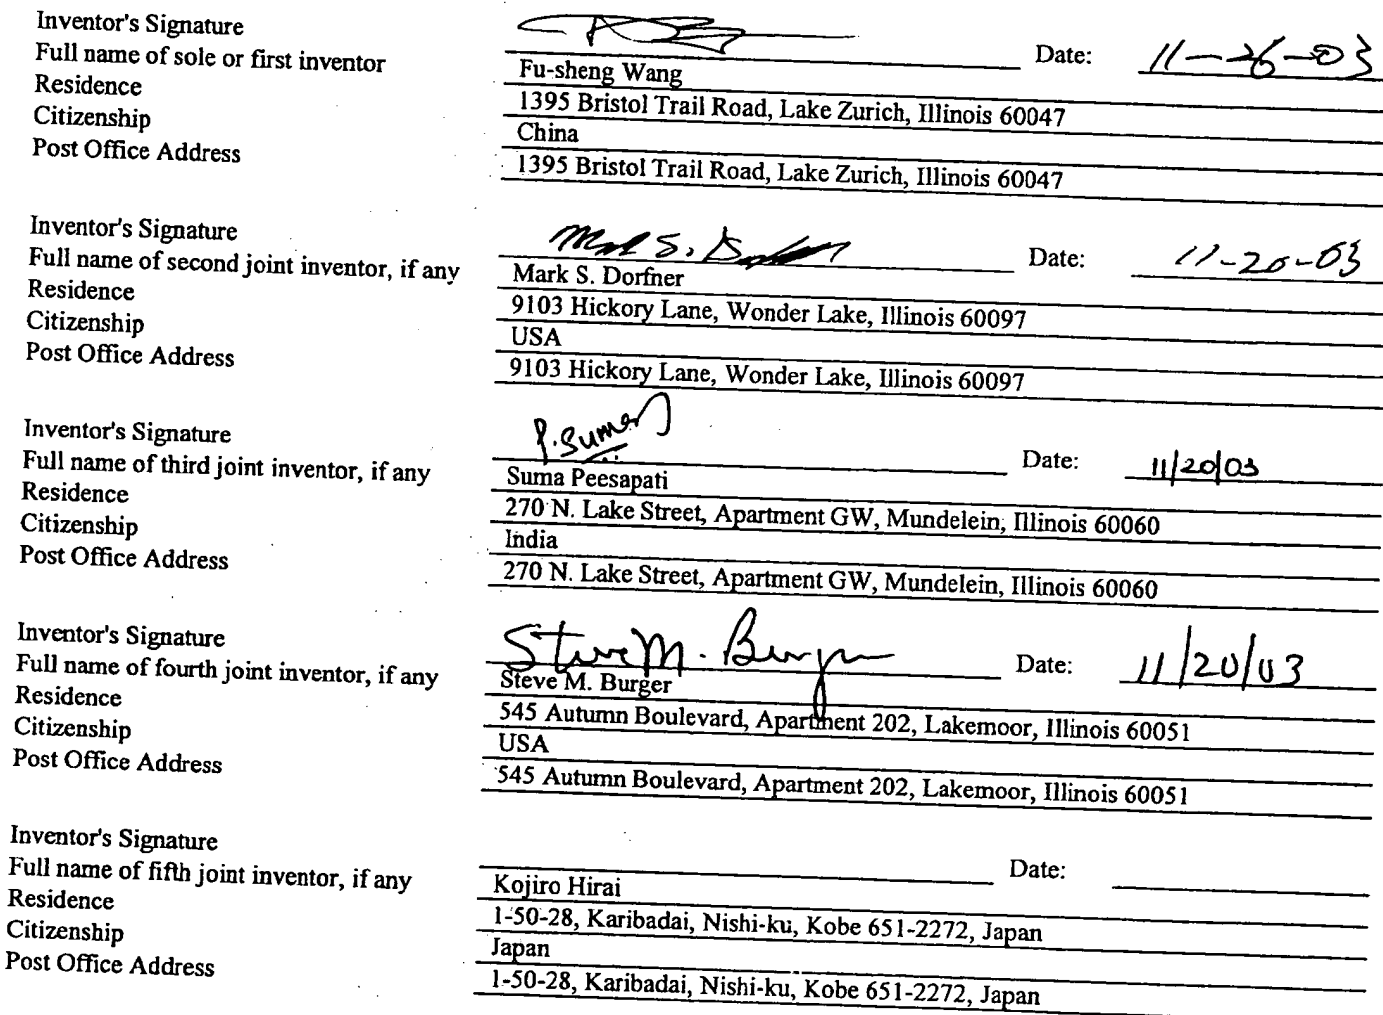 Inventor's Signature Date: 11-26-03
Full name of sole or first inventor Fu-sheng Wang
Residence 1395 Bristol Trail Road, Lake Zurich, Illinois 60047
Citizenship China
Post Office Address 1395 Bristol Trail Road, Lake Zurich, Illinois 60047
Inventor's Signature Mark S. Dorfner Date: 11-20-03
Full name of second joint inventor, if any Mark S. Dorfner
Residence 9103 Hickory Lane, Wonder Lake, Illinois 60097
Citizenship USA
Post Office Address 9103 Hickory Lane, Wonder Lake, Illinois 60097
Inventor's Signature P. Suma Date: 11/20/03
Full name of third joint inventor, if any Suma Peesapati
Residence 270 N. Lake Street, Apartment GW, Mundelein, Illinois 60060
Citizenship India
Post Office Address 270 N. Lake Street, Apartment GW, Mundelein, Illinois 60060
Inventor's Signature Steve M. Burger Date: 11/20/03
Full name of fourth joint inventor, if any Steve M. Burger
Residence 545 Autumn Boulevard, Apartment 202, Lakemoor, Illinois 60051
Citizenship USA
Post Office Address 545 Autumn Boulevard, Apartment 202, Lakemoor, Illinois 60051
Inventor's Signature Date:
Full name of fifth joint inventor, if any Kojiro Hirai
Residence 1-50-28, Karibadai, Nishi-ku, Kobe 651-2272, Japan
Citizenship Japan
Post Office Address 1-50-28, Karibadai, Nishi-ku, Kobe 651-2272, Japan